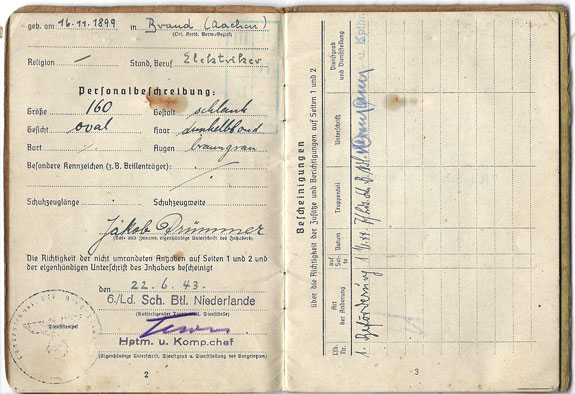 geb. am 16.11.1899 in Brand (Aachen)
(Ort, Kreis, Verw.-Bezirk)
Religion / Stand, Beruf Elektriker
Personalbeschreibung:
Größe 160 Gestalt schlank
Gesicht oval Haar dunkelblond
Bart / Augen braungrau
Besondere Kennzeichen (z. B. Brillenträger):
/
Schuhzeuglänge Schuhzeugweite
Jakob Drümmer
(Vor- und Zuname, eigenhändige Unterschrift des Inhabers)
Die Richtigkeit der nicht umrandeten Angaben auf Seiten 1 und 2
und der eigenhändigen Unterschrift des Inhabers bescheinigt
den 22.6.43.
6./Ld. Sch. Btl. Niederlande
(Ausfertigender Truppenteil, Dienststelle)
Dienststempel
Hptm. u. Komp.chef
(Eigenhändige Unterschrift, Dienstgrad u. Dienststellung des Vorgesetzten)
2
Bescheinigungen
über die Richtigkeit der Zusätze und Berichtigungen auf Seiten 1 und 2
Lfd. Nr.
Art der Änderung
auf Seite
Datum
Truppenteil
Unterschrift
Dienstgrad und Dienststellung
1. Beförderung 1
3